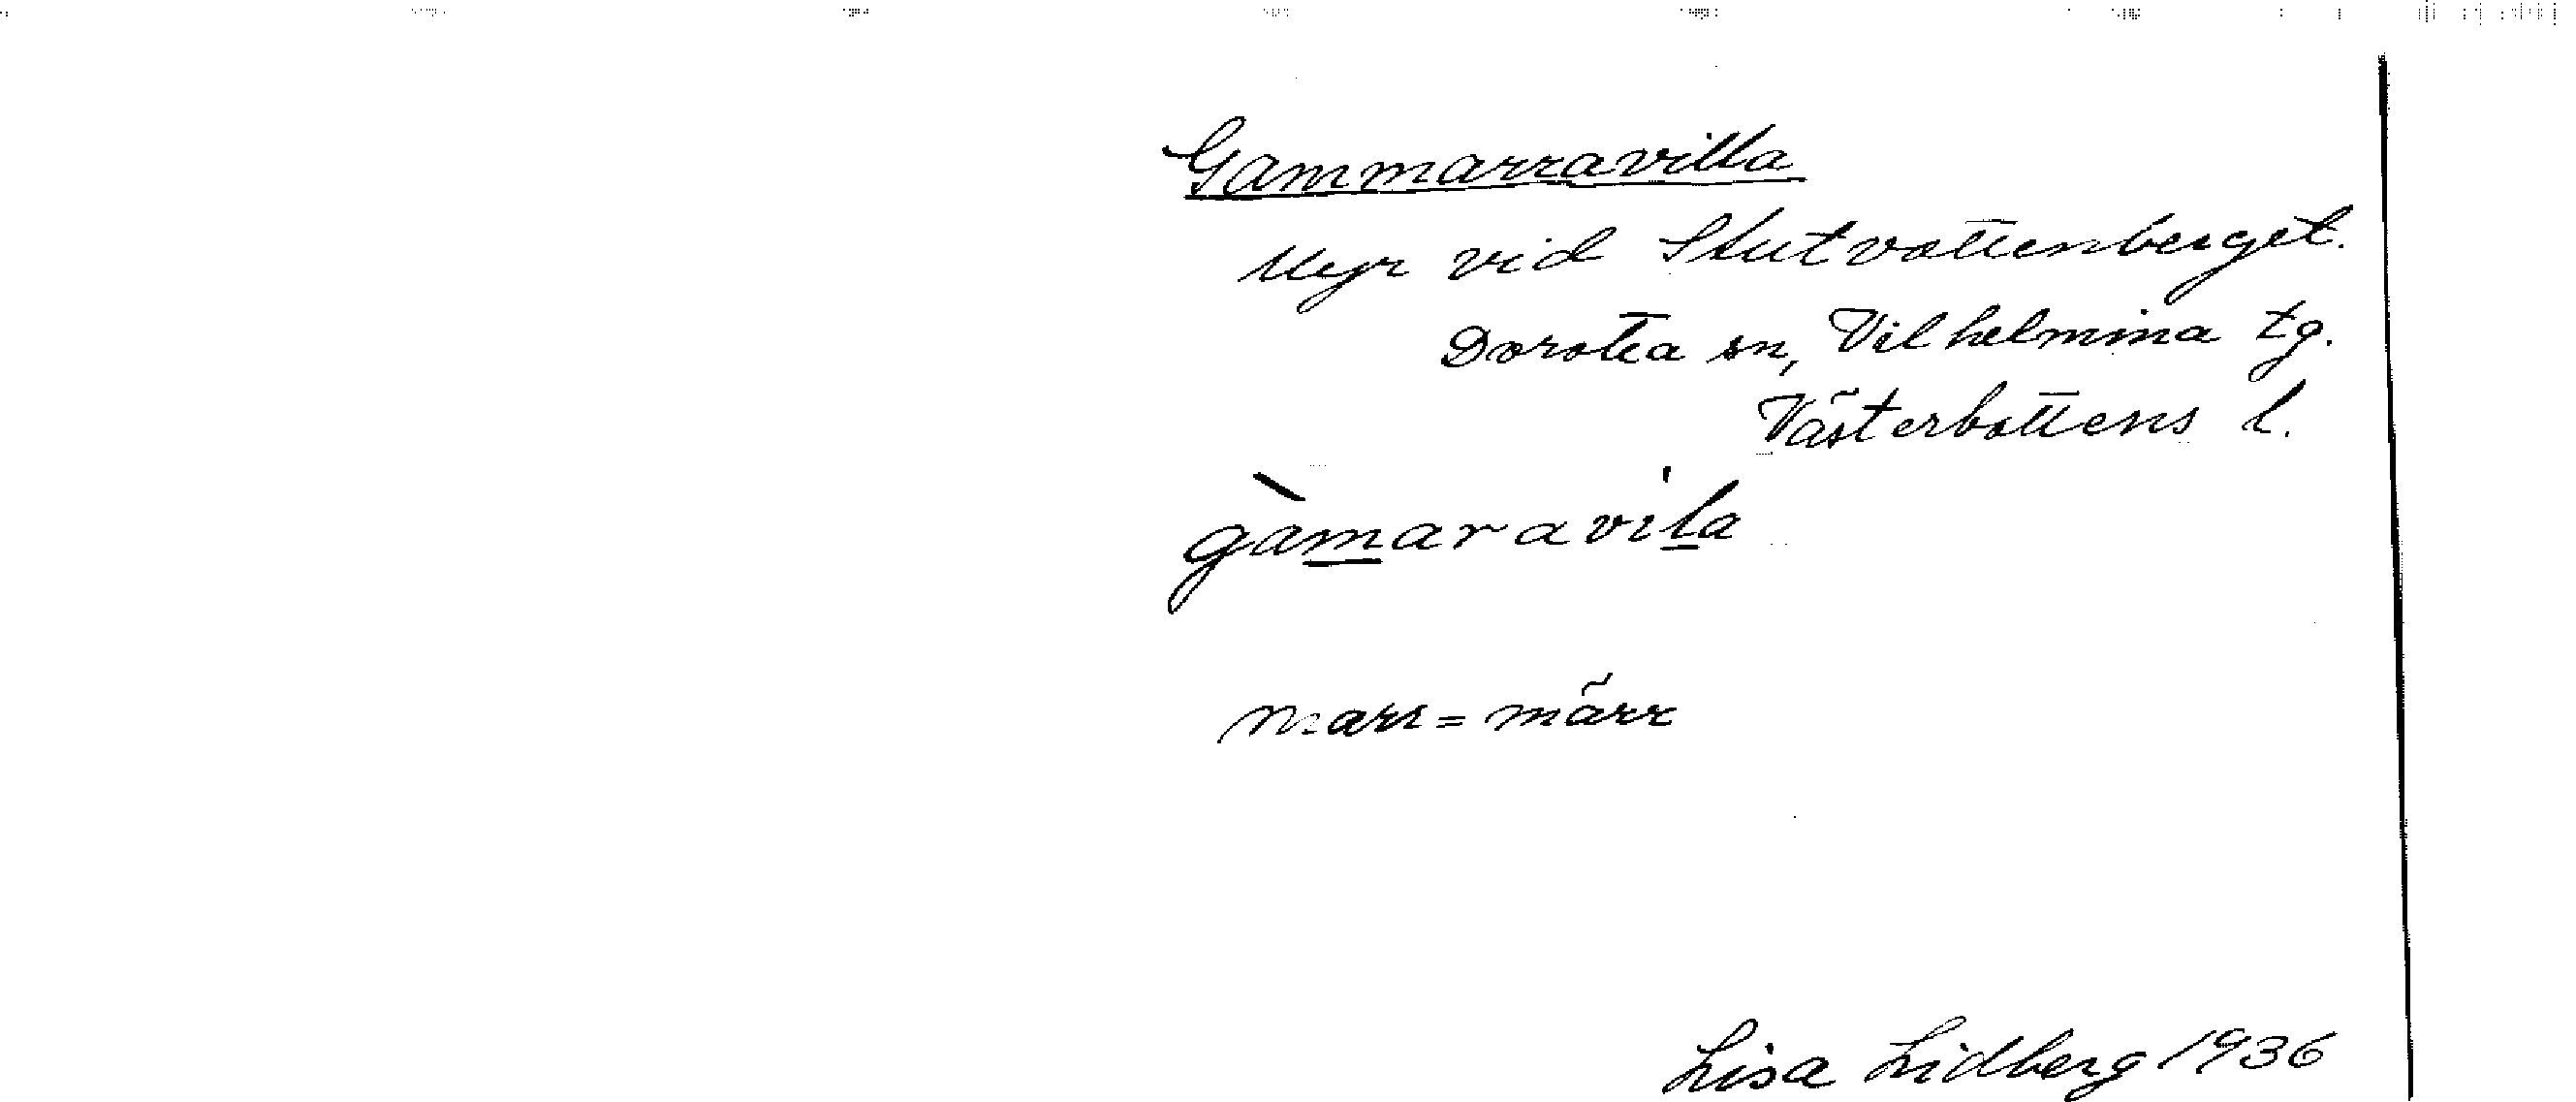 Gammarravilla
Myr vid Stutvattenberget.
Dorotea sn, Vilhelmina tg.
Västerbottens l.
gàmaravi'la
marr = märr
Lisa Lidberg 1936